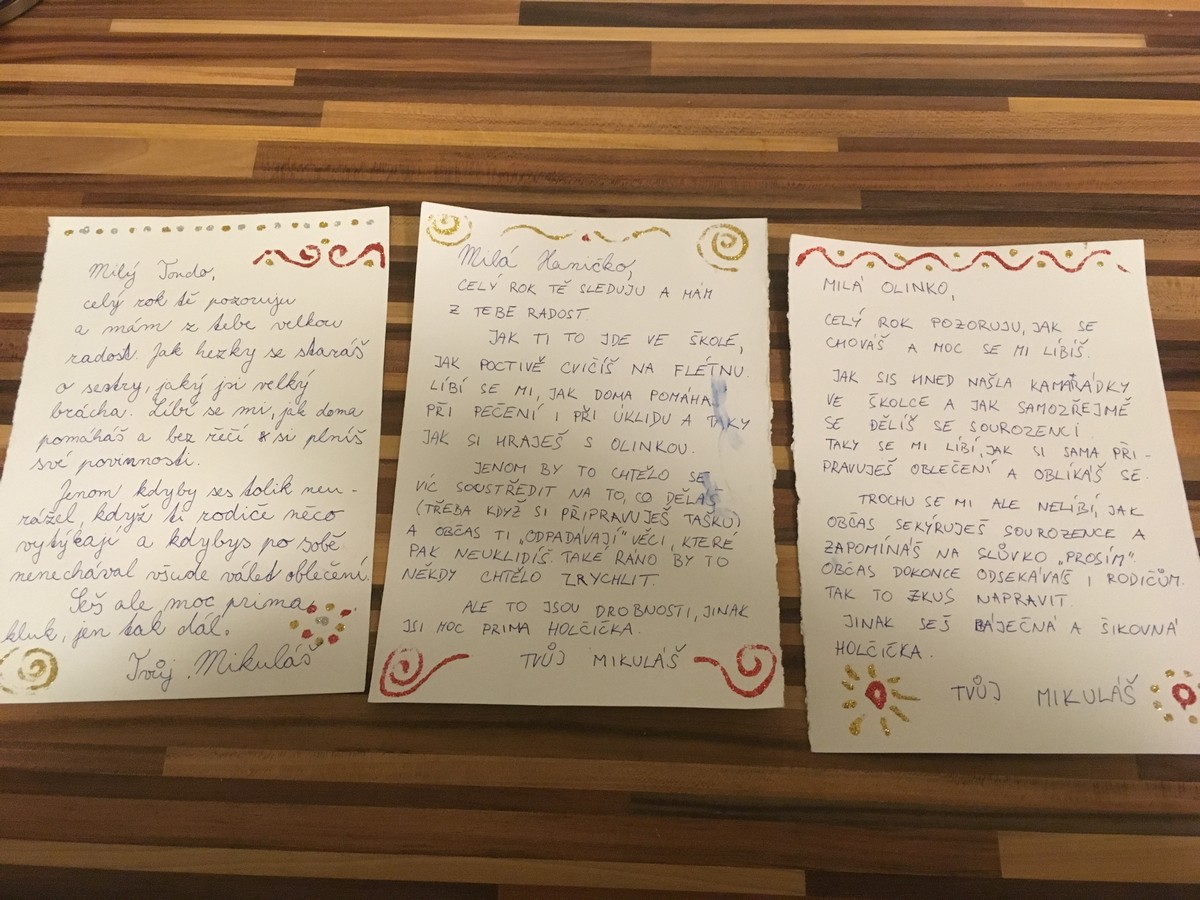 Milý Tondo,
celý rok tě pozoruju
a mám z tebe velkou
radost. Jak hezky se staráš
o sestry, jaký jsi velký
brácha. Líbí se mi, jak doma
pomáháš a bez řečí si plníš
své povinnosti.
Jenom kdyby ses tolik neu-
rážel, když ti rodiče něco
vytýkají a kdybys po sobě
nenechával všude válet oblečení.
Seš ale moc prima
kluk, jen tak dál.
Tvůj Mikuláš
Milá Haničko,
CELÝ ROK TĚ SLEDUJU A MÁM
Z TEBE RADOST
JAK TI TO JDE VE ŠKOLE,
JAK POCTIVĚ CVIČÍŠ NA FLÉTNU.
LÍBÍ SE MI, JAK DOMA POMÁHÁ
PŘI PEČENÍ I PŘI ÚKLIDU A TAKY
JAK SI HRAJEŠ S OLINKOU.
JENOM BY TO CHTĚLO SE
VÍC SOUSTŘEDIT NA TO, CO DĚLÁŠ
(TŘEBA KDYŽ SI PŘIPRAVUJEŠ TAŠKU)
A OBČAS TI „ODPADÁVAJÍ" VĚCI, KTERÉ
PAK NEUKLIDÍŠ. TAKÉ RÁNO BY TO
NĚKDY CHTĚLO ZRYCHLIT.
ALE TO JSOU DROBNOSTI, JINAK
JSI MOC PRIMA HOLČIČKA.
TVŮJ MIKULÁŠ
MILÁ OLINKO,
CELÝ ROK POZORUJU, JAK SE
CHOVÁŠ A MOC SE MI LÍBÍŠ.
JAK SIS HNED NAŠLA KAMARÁDKY
VE ŠKOLCE A JAK SAMOZŘEJMĚ
SE DĚLÍŠ SE SOUROZENCI
TAKY SE MI LÍBÍ, JAK SI SAMA PŘI-
PRAVUJEŠ OBLEČENÍ A OBLÍKÁŠ SE.
TROCHU SE MI ALE NELÍBÍ, JAK
OBČAS SEKÝRUJEŠ SOUROZENCE A
ZAPOMÍNÁŠ NA SLŮVKO „PROSÍM".
OBČAS DOKONCE ODSEKÁVÁŠ I RODIČŮM.
TAK TO ZKUS NAPRAVIT.
JINAK SEŠ BÁJEČNÁ A ŠIKOVNÁ
HOLČIČKA.
TVŮJ MIKULÁŠ